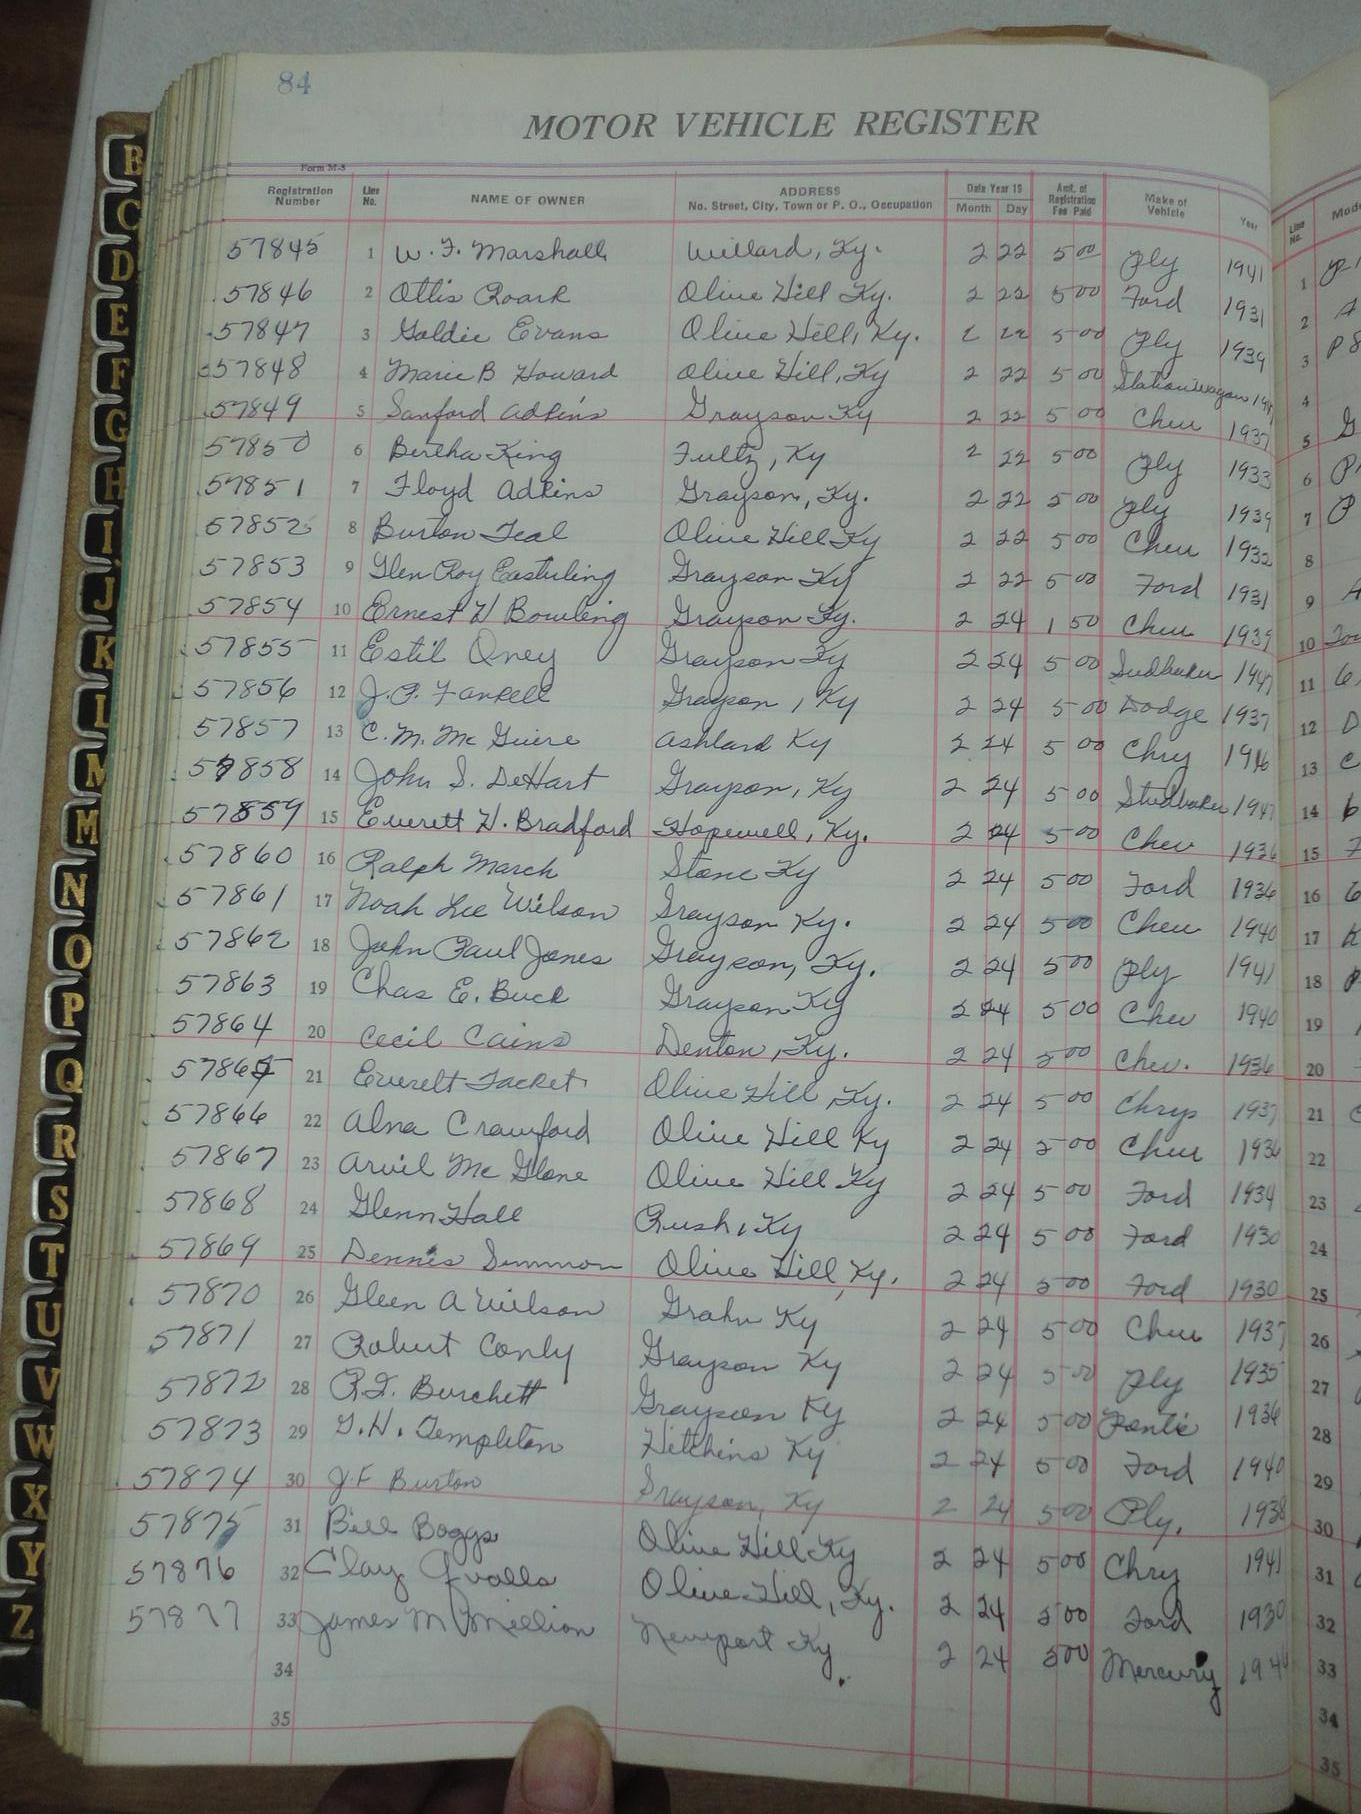 84
MOTOR VEHICLE REGISTER
Form M-8
Registration Number Line No. NAME OF OWNER ADDRESS No. Street, City, Town or P. O., Occupation Date Year 19 Month Day Amt. of Registration Fee Paid Make of Vehicle Year Line No.
57845 1 W. F. Marshall Willard, Ky. 2 22 5 00 Ply 1941 1
57846 2 Ottis Roark Olive Hill Ky. 2 22 5 00 Ford 1931 2
57847 3 Goldie Evans Olive Hill, Ky. 2 22 5 00 Ply 1939 3
57848 4 Marie B Howard Olive Hill, Ky 2 22 5 00 Stationwagon 4
57849 5 Sanford Adkins Grayson Ky 2 22 5 00 Chev 1937 5
57850 6 Bertha King Fultz, Ky 2 22 5 00 Ply 1933 6
57851 7 Floyd Adkins Grayson, Ky. 2 22 5 00 Ply 1939 7
57852 8 Burton Teal Olive Hill Ky 2 22 5 00 Chev 1932 8
57853 9 Glen Roy Easterling Grayson Ky 2 22 5 00 Ford 1931 9
57854 10 Ernest H Bowling Grayson Ky. 2 24 1 50 Chev 1939 10
57855 11 Estil Oney Grayson Ky 2 24 5 00 Sudbaker 1947 11
57856 12 J. P. Grayson, Ky 2 24 5 00 Dodge 1937 12
57857 13 C. M. Mc Guire Ashland Ky 2 24 5 00 Chry 1946 13
57858 14 John S. DeHart Grayson, Ky 2 24 5 00 Studbaker 1947 14
57859 15 Everett H. Bradford Hopewell, Ky. 2 24 5 00 Chev 1936 15
57860 16 Ralph March Stone Ky 2 24 5 00 Ford 1936 16
57861 17 Noah Lee Wilson Grayson Ky. 2 24 5 00 Chev 1940 17
57862 18 John Paul Jones Grayson, Ky. 2 24 5 00 Ply 1941 18
57863 19 Chas E. Buck Grayson Ky 2 24 5 00 Chev 1940 19
57864 20 Cecil Cains Denton, Ky. 2 24 5 00 Chev. 1936 20
57865 21 Everett Tacket Olive Hill, Ky. 2 24 5 00 Chrys 1937 21
57866 22 Alna Crawford Olive Hill Ky 2 24 5 00 Chev 1936 22
57867 23 Arvil Mc Glone Olive Hill Ky 2 24 5 00 Ford 1934 23
57868 24 Glenn Hall Rush, Ky 2 24 5 00 Ford 1930 24
57869 25 Dennis Simmon Olive Hill, Ky. 2 24 5 00 Ford 1930 25
57870 26 Gleen A Wilson Grahn Ky 2 24 5 00 Chev 1937 26
57871 27 Robert Conly Grayson Ky 2 24 5 00 Ply 1935 27
57872 28 Burchett Grayson Ky 2 24 5 00 Pontic 1936 28
57873 29 Templeton Hitchins Ky 2 24 5 00 Ford 1940 29
57874 30 J. F Burton Grayson, Ky 2 24 5 00 Ply. 1938 30
57875 31 Bill Boggs Olive Hill Ky 2 24 5 00 Chry 1941 31
57876 32 Clay Qualls Olive Hill, Ky. 2 24 5 00 Ford 1930 32
57877 33 James McMillion Newport Ky 2 24 5 00 Mercury 33
34 34
35 35
B
C
D
E
F
G
H
I
J
K
L
M
M
N
O
P
Q
R
S
T
U
V
W
X
Y
Z